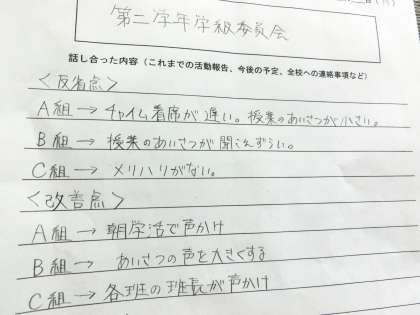 第三学年学級委員会
話し合った内容（これまでの活動報告、今後の予定、全校への連絡事項など）
＜反省点＞
A組→チャイム着席が遅い。授業のあいさつが小さい。
B組→授業のあいさつが聞えずらい。
C組→メリハリがない。
＜改善点＞
A組→朝学活で声かけ
B組→あいさつの声を大きくする
C組→各班の班長が声かけ